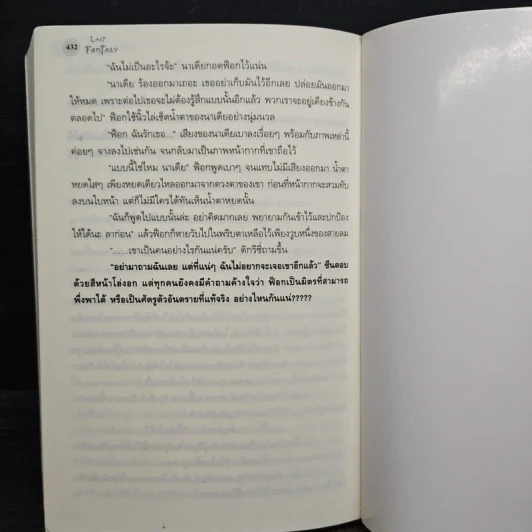 432
LAST
FANTASY
"ฉันไม่เป็นอะไรจ้ะ" นาเดียกอดฟ็อกไว้แน่น
"นาเดีย ร้องออกมาเถอะ เธออย่าเก็บมันไว้อีกเลย ปล่อยมันออกมา
ให้หมด เพราะต่อไปเธอจะไม่ต้องรู้สึกแบบนั้นอีกแล้ว พวกเราจะอยู่เคียงข้างกัน
ตลอดไป" ฟ็อกใช้นิ้วไล่เช็ดน้ำตาของนาเดียอย่างนุ่มนวล
"ฟ็อก ฉันรักเธอ..." เสียงของนาเดียเบาลงเรื่อยๆ พร้อมกับภาพเหล่านี้
ค่อยๆ จางลงไปเช่นกัน จนกลับมาเป็นภาพหน้ากากที่เขาถือไว้
"แบบนี้ใช่ไหม นาเดีย" ฟ็อกพูดเบาๆ จนแทบไม่มีเสียงออกมา น้ำตา
หยดใสๆ เพียงหยดเดียวไหลออกมาจากดวงตาของเขา ก่อนที่หน้ากากจะสวมทับ
ลงบนใบหน้า แต่ก็ไม่มีใครได้ทันเห็นน้ำตาหยดนั้น
"ฉันก็พูดไปแบบนั้นล่ะ อย่าคิดมากเลย พยายามกันเข้าไว้และปกป้อง
ให้ได้นะ ลาก่อน" แล้วฟ็อกก็หายวับไปในพริบตาเหลือไว้เพียงวูบหนึ่งของสายลม
"......เขาเป็นคนอย่างไรกันแน่ครับ" ดิกวีซี่ถามขึ้น
"อย่ามาถามฉันเลย แต่ที่แน่ๆ ฉันไม่อยากจะเจอเขาอีกแล้ว" ซีนตอบ
ด้วยสีหน้าโล่งอก แต่ทุกคนยังคงมีคำถามค้างใจว่า ฟ็อกเป็นมิตรที่สามารถ
พึ่งพาได้ หรือเป็นศัตรูตัวอันตรายที่แท้จริง อย่างไหนกันแน่?????